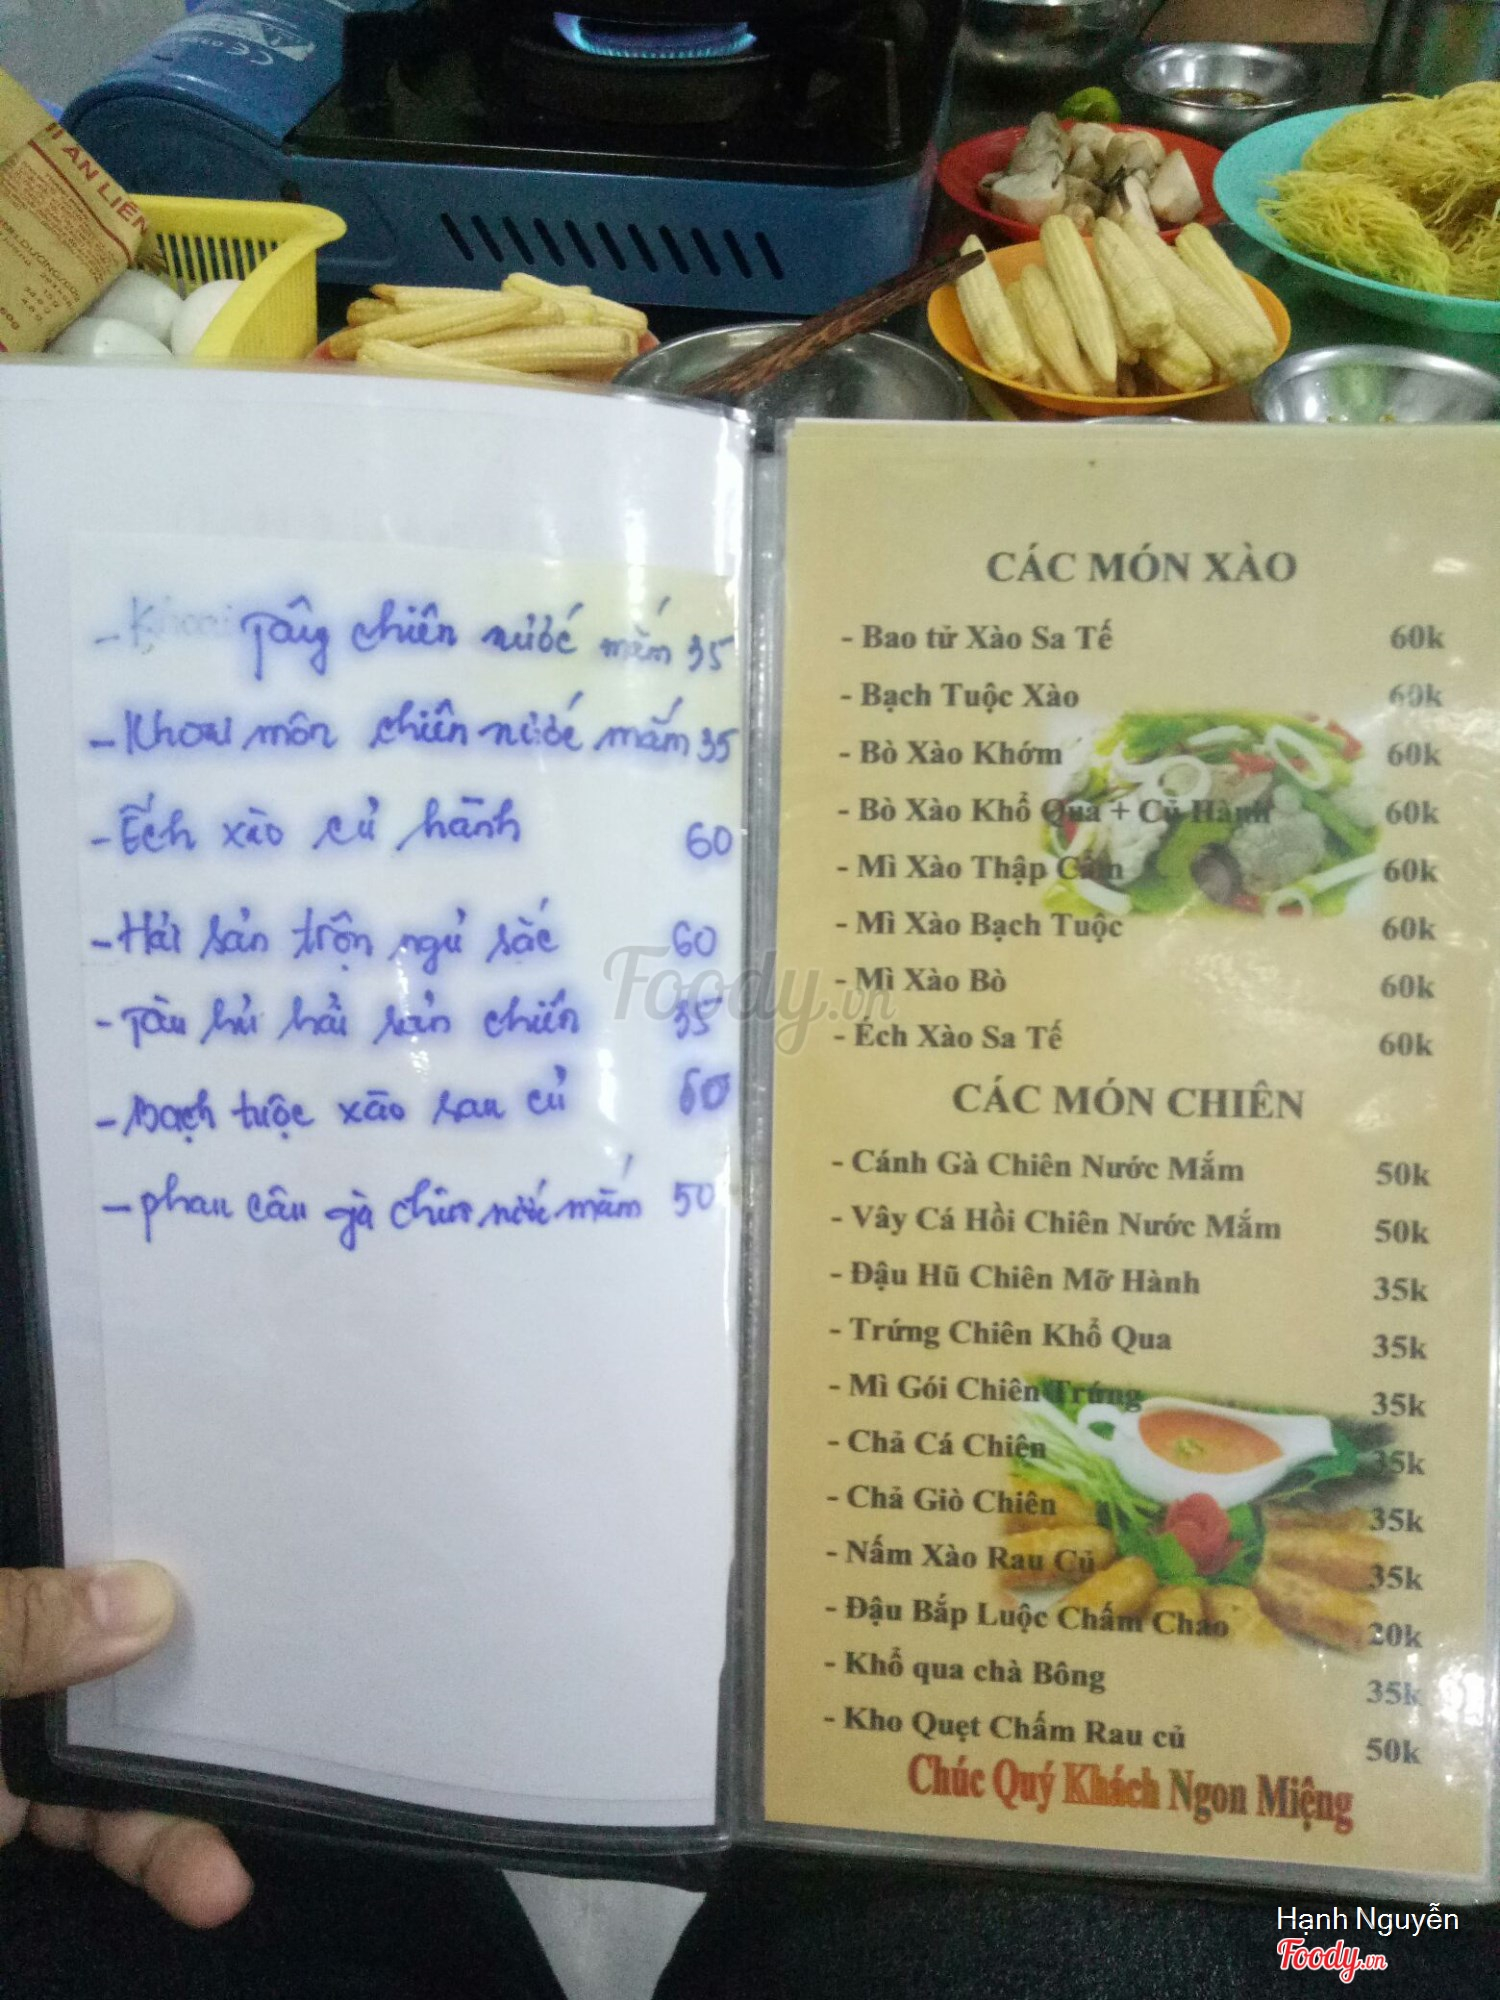 ĂN LIỀN
- Khoai Tây chiên nước mắm 35
- Khoai môn chiên nước mắm 35
- Ếch xào củ hành 60
- Hải sản trộn ngũ sắc 60
- Tàu hủ hải sản chiên 35
- Bạch tuộc xào rau củ 60
- phau câu gà chiên nước mắm 50
CÁC MÓN XÀO
- Bao tử Xào Sa Tế 60k
- Bạch Tuộc Xào 60k
- Bò Xào Khớm 60k
- Bò Xào Khổ Qua + Củ Hành 60k
- Mì Xào Thập Cẩm 60k
- Mì Xào Bạch Tuộc 60k
- Mì Xào Bò 60k
- Ếch Xào Sa Tế 60k
CÁC MÓN CHIÊN
- Cánh Gà Chiên Nước Mắm 50k
- Vây Cá Hồi Chiên Nước Mắm 50k
- Đậu Hũ Chiên Mỡ Hành 35k
- Trứng Chiên Khổ Qua 35k
- Mì Gói Chiên Trứng 35k
- Chả Cá Chiên 35k
- Chả Giò Chiên 35k
- Nấm Xào Rau Củ 35k
- Đậu Bắp Luộc Chấm Chao 20k
- Khổ qua chà Bông 35k
- Kho Quẹt Chấm Rau củ 50k
Chúc Quý Khách Ngon Miệng
Foody.vn
Hạnh Nguyễn
Foody.vn